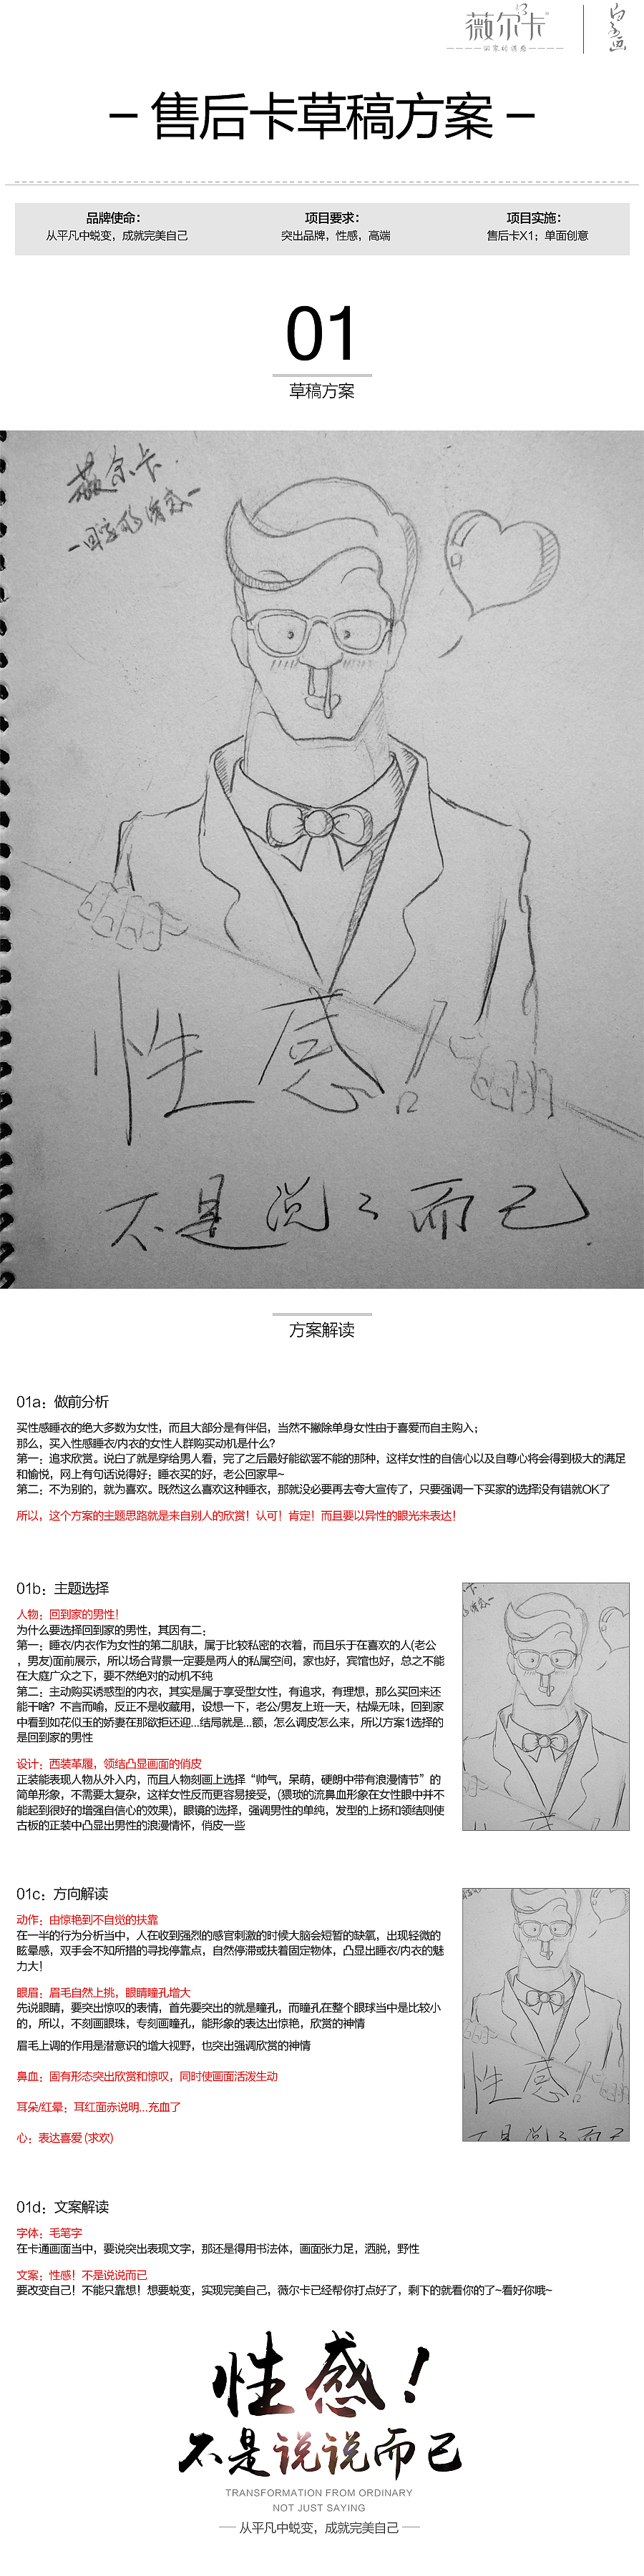 薇尔卡
回家的诱惑
- 售后卡草稿方案 -
品牌使命：
从平凡中蜕变，成就完美自己
项目要求：
突出品牌，性感，高端
项目实施：
售后卡X1；单面创意
01
草稿方案
薇尔卡
-回家的诱惑-
性感！
不是说说而已
方案解读
01a：做前分析
买性感睡衣的绝大多数为女性，而且大部分是有伴侣，当然不撇除单身女性由于喜爱而自主购入；
那么，买入性感睡衣/内衣的女性人群购买动机是什么？
第一：追求欣赏。说白了就是穿给男人看，完了之后最好能欲罢不能的那种，这样女性的自信心以及自尊心将会得到极大的满足
和愉悦，网上有句话说得好：睡衣买的好，老公回家早~
第二：不为别的，就为喜欢。既然这么喜欢这种睡衣，那就没必要再去夸大宣传了，只要强调一下买家的选择没有错就OK了
所以，这个方案的主题思路就是来自别人的欣赏！认可！肯定！而且要以异性的眼光来表达！
01b：主题选择
人物：回到家的男性！
为什么要选择回到家的男性，其因有二：
第一：睡衣/内衣作为女性的第二肌肤，属于比较私密的衣着，而且乐于在喜欢的人(老公
，男友)面前展示，所以场合背景一定要是两人的私属空间，家也好，宾馆也好，总之不能
在大庭广众之下，要不然绝对的动机不纯
第二：主动购买诱惑型的内衣，其实是属于享受型女性，有追求，有理想，那么买回来还
能干啥？不言而喻，反正不是收藏用，设想一下，老公/男友上班一天，枯燥无味，回到家
中看到如花似玉的娇妻在那欲拒还迎...结局就是...额，怎么调皮怎么来，所以方案1选择的
是回到家的男性
设计：西装革履，领结凸显画面的俏皮
正装能表现人物从外入内，而且人物刻画上选择“帅气，呆萌，硬朗中带有浪漫情节”的
简单形象，不需要太复杂，这样女性反而更容易接受，(猥琐的流鼻血形象在女性眼中并不
能起到很好的增强自信心的效果)，眼镜的选择，强调男性的单纯，发型的上扬和领结则使
古板的正装中凸显出男性的浪漫情怀，俏皮一些
01c：方向解读
动作：由惊艳到不自觉的扶靠
在一半的行为分析当中，人在收到强烈的感官刺激的时候大脑会短暂的缺氧，出现轻微的
眩晕感，双手会不知所措的寻找停靠点，自然停滞或扶着固定物体，凸显出睡衣/内衣的魅
力大！
眼眉：眉毛自然上挑，眼睛瞳孔增大
先说眼睛，要突出惊叹的表情，首先要突出的就是瞳孔，而瞳孔在整个眼球当中是比较小
的，所以，不刻画眼珠，专刻画瞳孔，能形象的表达出惊艳，欣赏的神情
眉毛上调的作用是潜意识的增大视野，也突出强调欣赏的神情
鼻血：固有形态突出欣赏和惊叹，同时使画面活泼生动
耳朵/红晕：耳红面赤说明...充血了
心：表达喜爱 (求欢)
01d：文案解读
字体：毛笔字
在卡通画面当中，要说突出表现文字，那还是得用书法体，画面张力足，洒脱，野性
文案：性感！不是说说而已
要改变自己！不能只靠想！想要蜕变，实现完美自己，薇尔卡已经帮你打点好了，剩下的就看你的了~看好你哦~
性感！
不是说说而已
TRANSFORMATION FROM ORDINARY
NOT JUST SAYING
从平凡中蜕变，成就完美自己